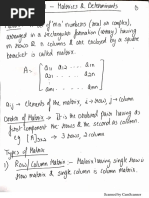 - Matrices & Determinants
of 'mn' numbers (real or complex),
arranged in a rectangular formation (array) having
m rows & n column & are enclosed by a square
bracket is called matrix.
A = [a₁₁ a₁₂ ... a₁ₙ
a₂₁ a₂₂ ... a₂ₙ
aₘ₁ aₘ₂ ... aₘₙ]
aᵢⱼ → Elements of the matrix, i → row, j → column
Order of Matrix → It is the ordered pair having as
first component the rows & the second as column.
eg [A]₃ₓ₂ → 3 row, 2 column
Types of Matrix
1) Row/Column Matrix → Matrix having single row is
Row matrix & single column is column Matrix.
Scanned by CamScanner